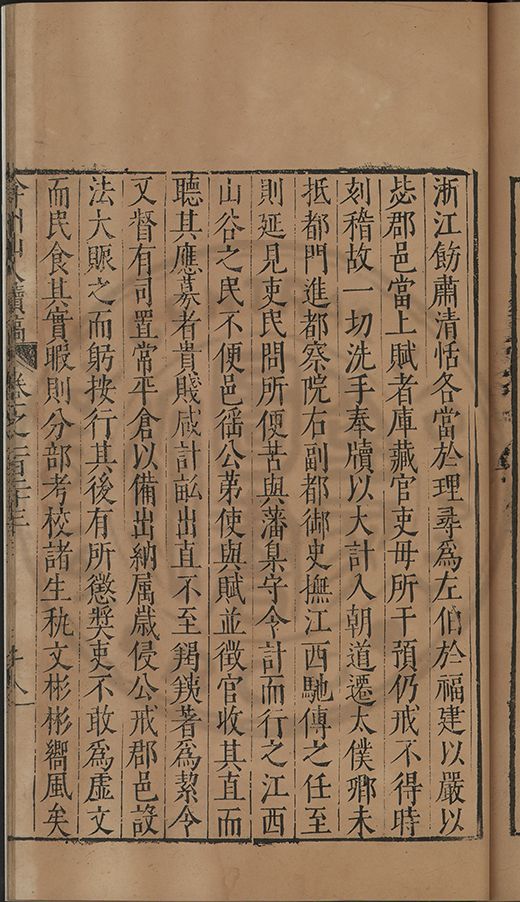 浙江飭肅清恬各當於理尋為左伯於福建以嚴以
毖郡邑當上賦者庫藏官吏毋所干預仍戒不得時
刻稽故一切洗手奉牘以大計入朝道遷太僕卿未
抵都門進都察院右副都御史撫江西馳傳之任至
則延見吏民問所便苦與藩臬守令計而行之江西
山谷之民不便邑徭公第使與賦並徵官收其直而
聽其應募者貴賤咸計訟出直不至羯羠著為絜令
又督有司置常平倉以備出納属歲侵公戒郡邑設
法大賑之而躬按行其後有所懲獎吏不敢為虛文
而民食其實暇則分部考校諸生秇文彬彬嚮風矣
弇州山人續稿 卷之一百二十三 十八